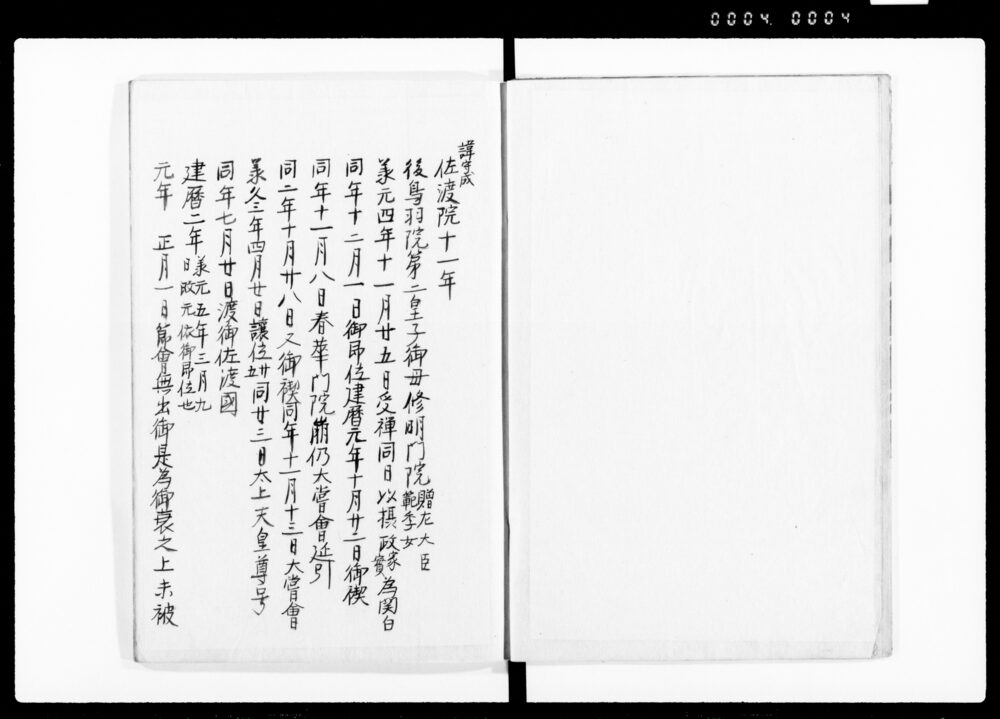 0004. 0004
諱守成
佐渡院十一年
後鳥羽院第二皇子御母修明門院贈左大臣範季女
承元四年十一月廿五日受禅同日以摂政家実為関白
同年十二月一日御即位建暦元年十月廿二日御禊
同年十一月八日春華門院崩仍大嘗會延引
同二年十月廿八日又御禊同年十一月十三日大嘗會
承久三年四月廿日讓位廿五同廿三日太上天皇尊号
同年七月廿日渡御佐渡國
建暦二年承元五年三月九日改元依御即位也
元年 正月一日節會無出御是為御衰之上未被